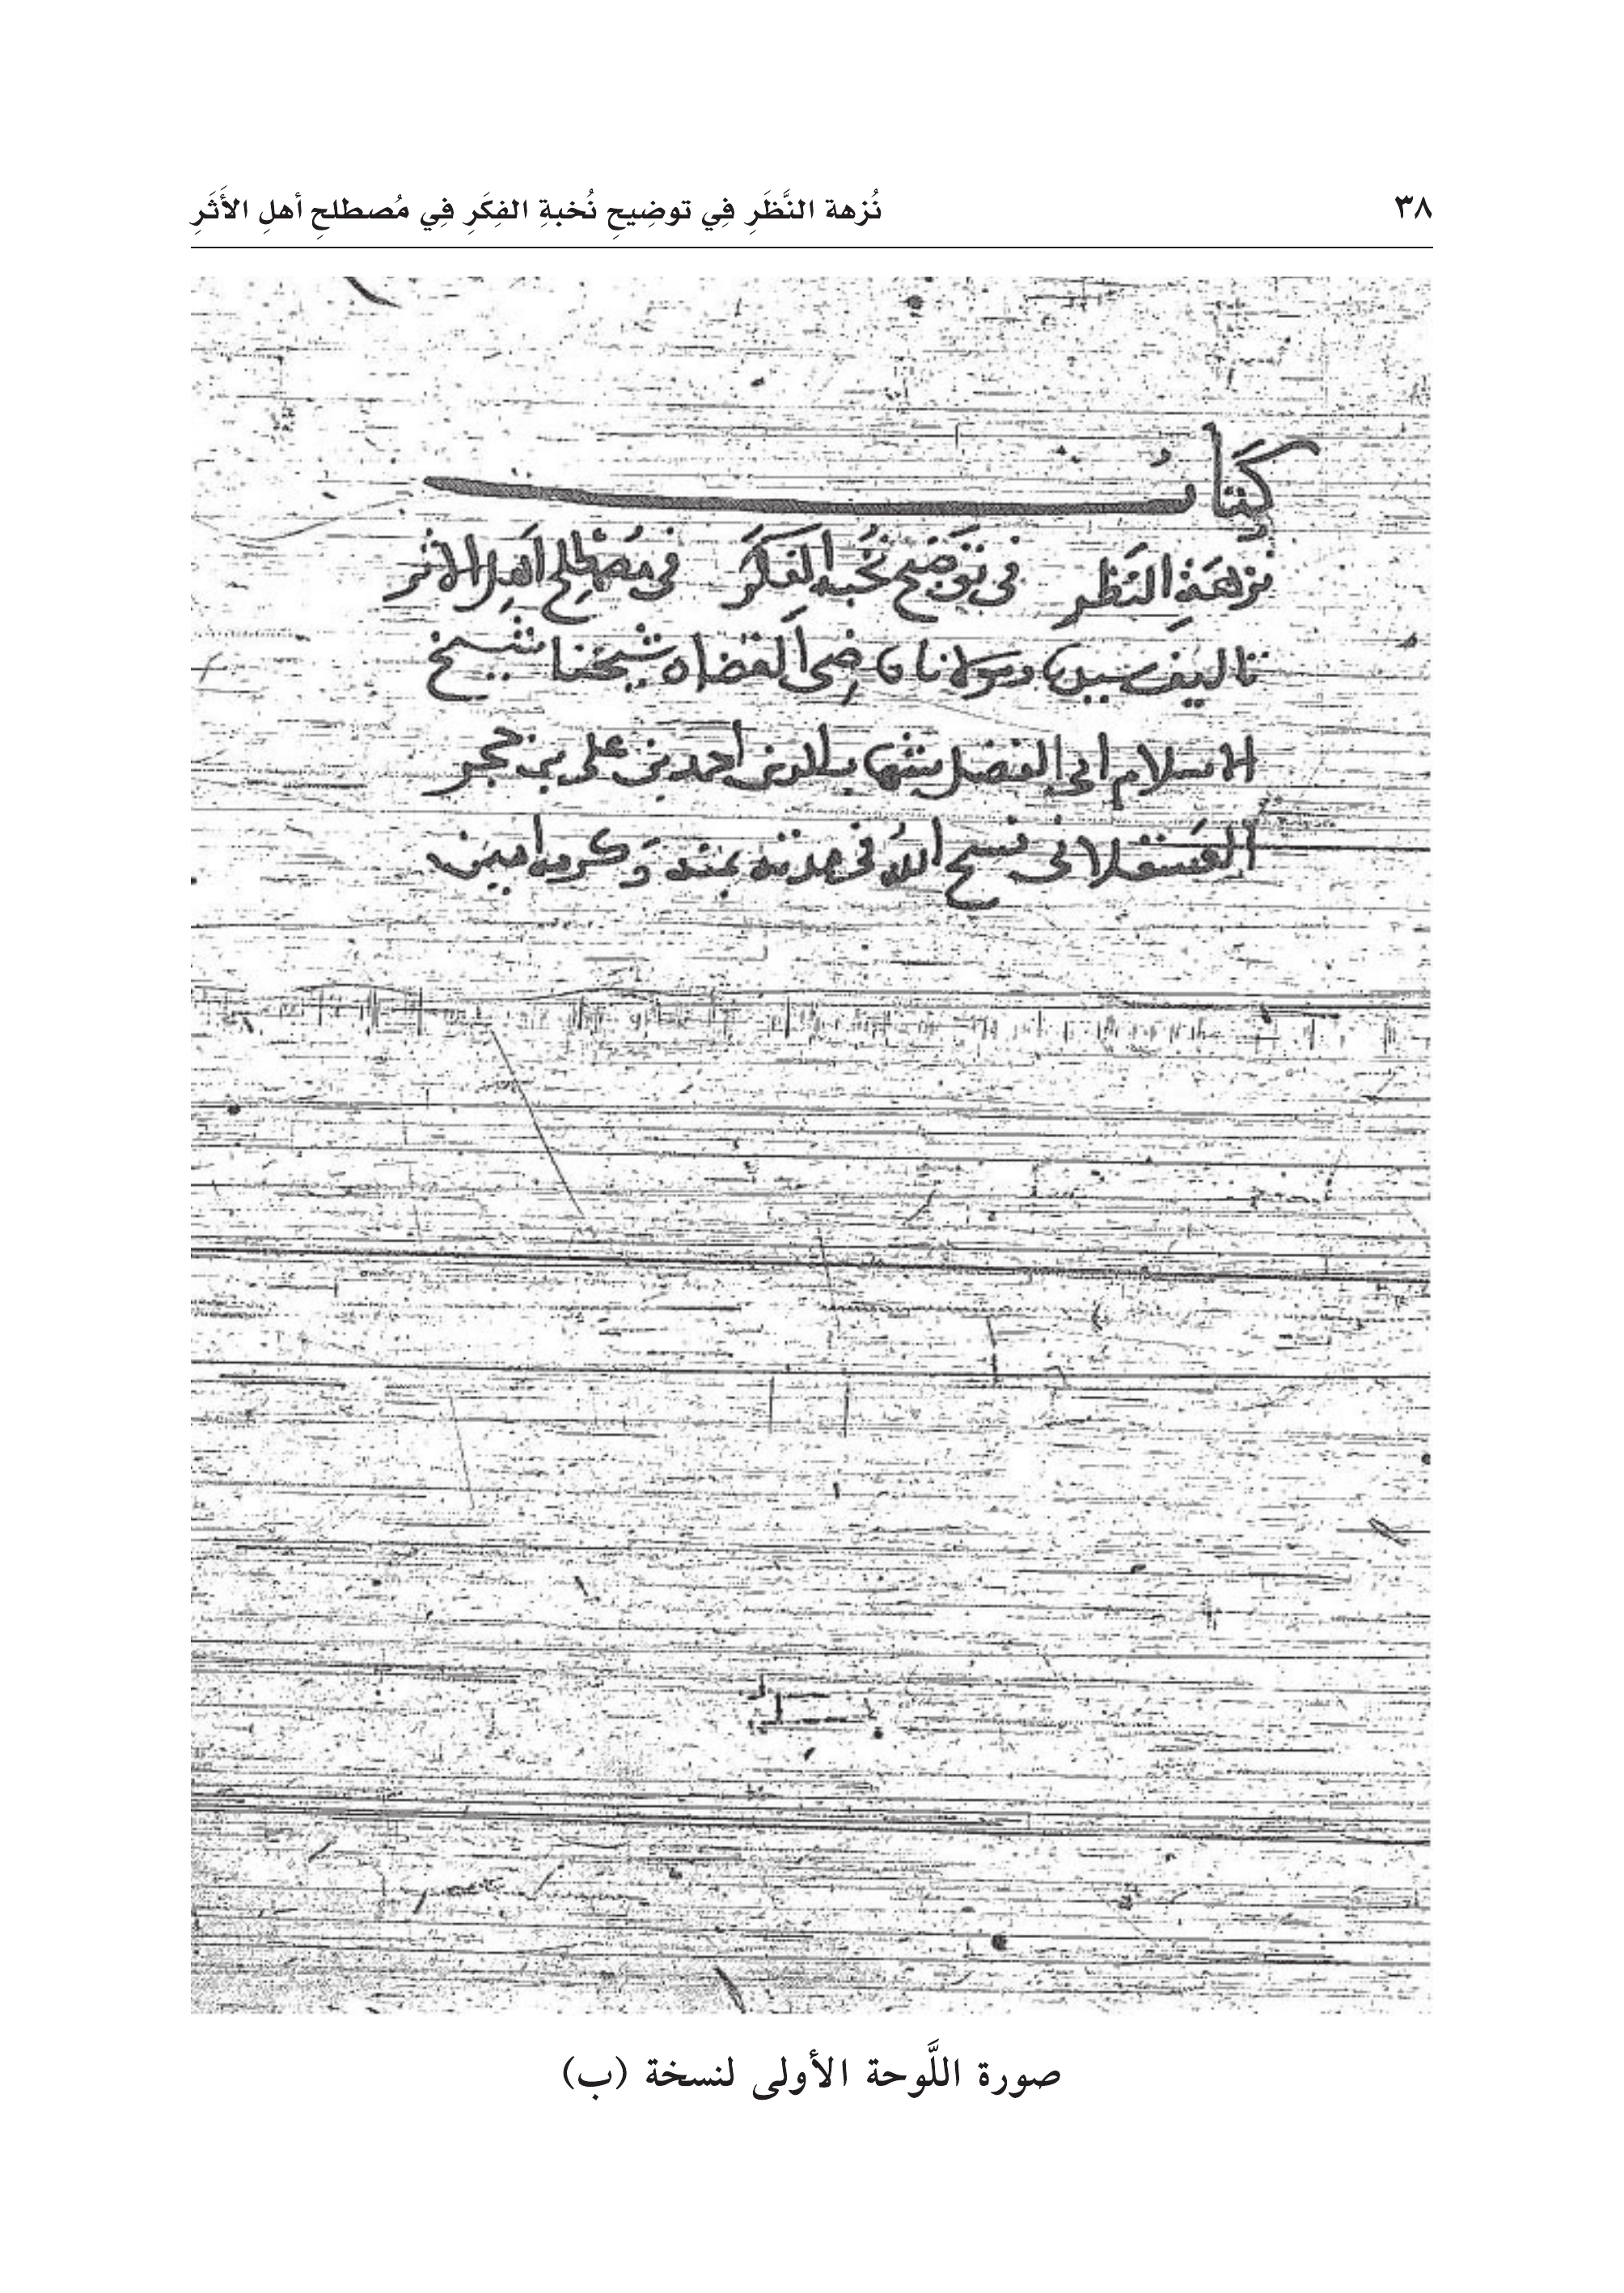 ٣٨
نُزهة النَّظَرِ فِي توضِيحِ نُخبةِ الفِكَرِ فِي مُصطلحِ أهلِ الأَثَرِ
كتاب
نزهة النظر في توضيح نخبه الفكر في مصطلح اهل الاثر
تاليف سيدنا ومولانا قاضى القضاه شيخنا شيخ
الاسلام ابي الفضل شهاب الدين احمد بن على بن حجر
العسقلاني فسح الله في مدته بمنه وكرمه امين
صورة اللَّوحة الأولى لنسخة (ب)